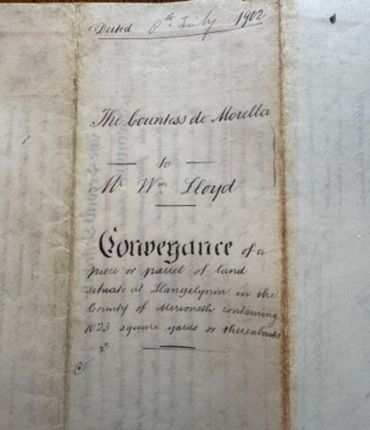 Dated 8th July 1902
The Countess de Morella
to
Mr. Wm Lloyd
Conveyance of a
piece or parcel of land
situate at Llangelynin in the
County of Merioneth containing
1023 square yards or thereabouts